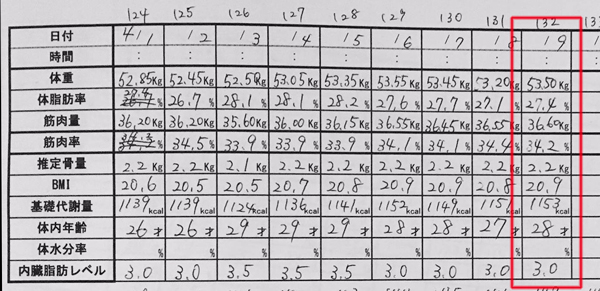 124 125 126 127 128 129 130 131 132
日付 4/1 /2 /3 /4 /5 /6 /7 /8 /9
時間 : : : : : : : : :
体重 52.85Kg 52.45Kg 52.50Kg 53.05Kg 53.35Kg 53.55Kg 53.45Kg 53.20Kg 53.50Kg
体脂肪率 % 26.7% 28.1% 28.1% 28.2% 27.6% 27.7% 27.1% 27.4%
筋肉量 36.20Kg 36.20Kg 35.60Kg 36.00Kg 36.15Kg 36.55Kg 36.45Kg 36.55Kg 36.60Kg
筋肉率 % 34.5% 33.9% 33.9% 33.9% 34.1% 34.1% 34.4% 34.2%
推定骨量 2.2Kg 2.2Kg 2.1Kg 2.2Kg 2.2Kg 2.2Kg 2.2Kg 2.2Kg 2.2Kg
BMI 20.6 20.5 20.5 20.7 20.8 20.9 20.9 20.8 20.9
基礎代謝量 1139kcal 1139kcal 1124kcal 1136kcal 1141kcal 1152kcal 1149kcal 1151kcal 1153kcal
体内年齢 26才 26才 29才 29才 29才 28才 28才 27才 28才
体水分率 % % % % % % % % %
内臓脂肪レベル 3.0 3.0 3.5 3.5 3.5 3.0 3.0 3.0 3.0